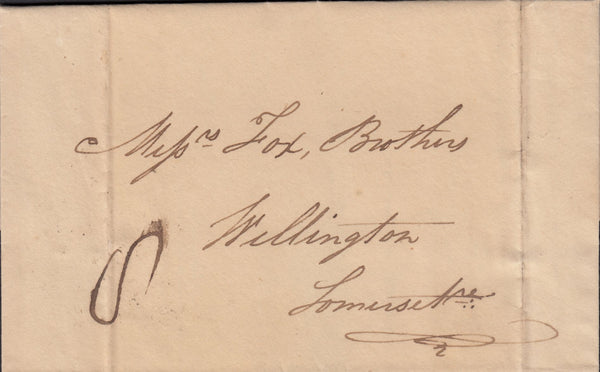 Messrs Fox, Brothers
Wellington
Somersetre.
8